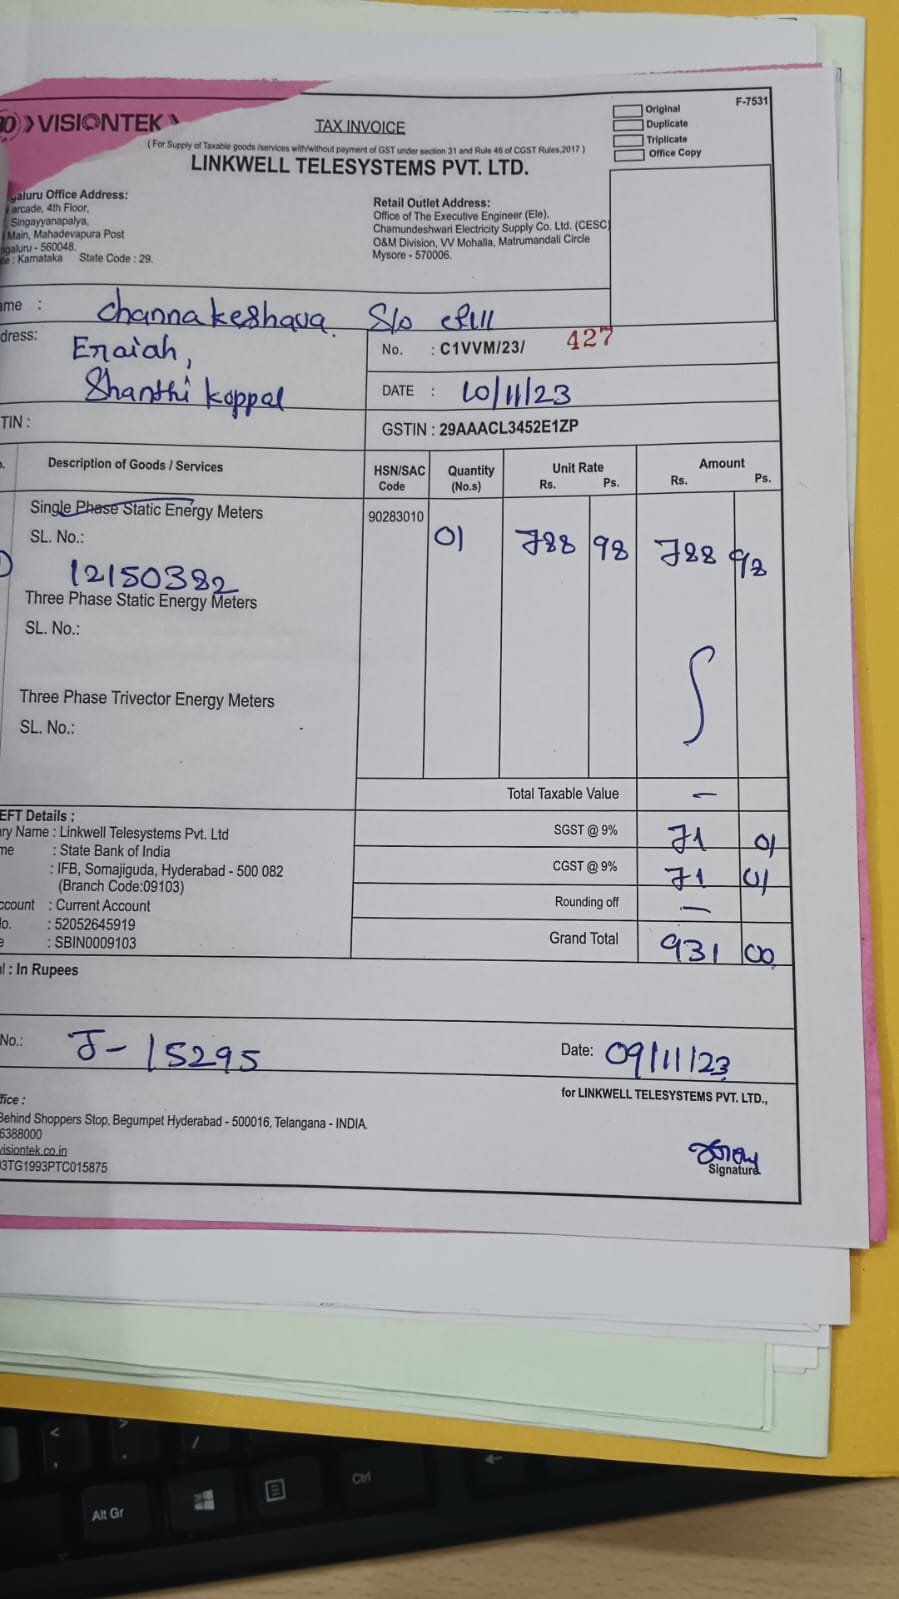 VISIONTEK
TAX INVOICE
F-7531
Original
Duplicate
Triplicate
Office Copy
( For Supply of Taxable goods /services with/without payment of GST under section 31 and Rule 46 of CGST Rules,2017 )
LINKWELL TELESYSTEMS PVT. LTD.
galuru Office Address:
arcade, 4th Floor,
Singayyanapalya,
Main, Mahadevapura Post
ngaluru - 560048.
te : Karnataka State Code : 29.
Retail Outlet Address:
Office of The Executive Engineer (Ele),
Chamundeshwari Electricity Supply Co. Ltd. (CESC)
O&M Division, VV Mohalla, Matrumandali Circle
Mysore - 570006.
ame : Channakeshava S/o
dress: Eraiah,
Shanthi Koppal
No. : C1VVM/23/ 427
DATE : 10/11/23
TIN :
GSTIN : 29AAACL3452E1ZP
o. Description of Goods / Services HSN/SAC Code Quantity (No.s) Unit Rate Rs. Ps. Amount Rs. Ps.
Single Phase Static Energy Meters 90283010 01 788 98 788 98
SL. No.:
12150382
Three Phase Static Energy Meters
SL. No.:
Three Phase Trivector Energy Meters
SL. No.:
Total Taxable Value —
EFT Details :
ry Name : Linkwell Telesystems Pvt. Ltd
me : State Bank of India
: IFB, Somajiguda, Hyderabad - 500 082
(Branch Code:09103)
ccount : Current Account
lo. : 52052645919
e : SBIN0009103
SGST @ 9% 71 01
CGST @ 9% 71 01
Rounding off —
Grand Total 931 00
l : In Rupees
No.: J- 15295
Date: 09/11/23
for LINKWELL TELESYSTEMS PVT. LTD.,
ffice :
Behind Shoppers Stop, Begumpet Hyderabad - 500016, Telangana - INDIA.
6388000
visiontek.co.in
03TG1993PTC015875
Signature
Alt Gr
Ctrl